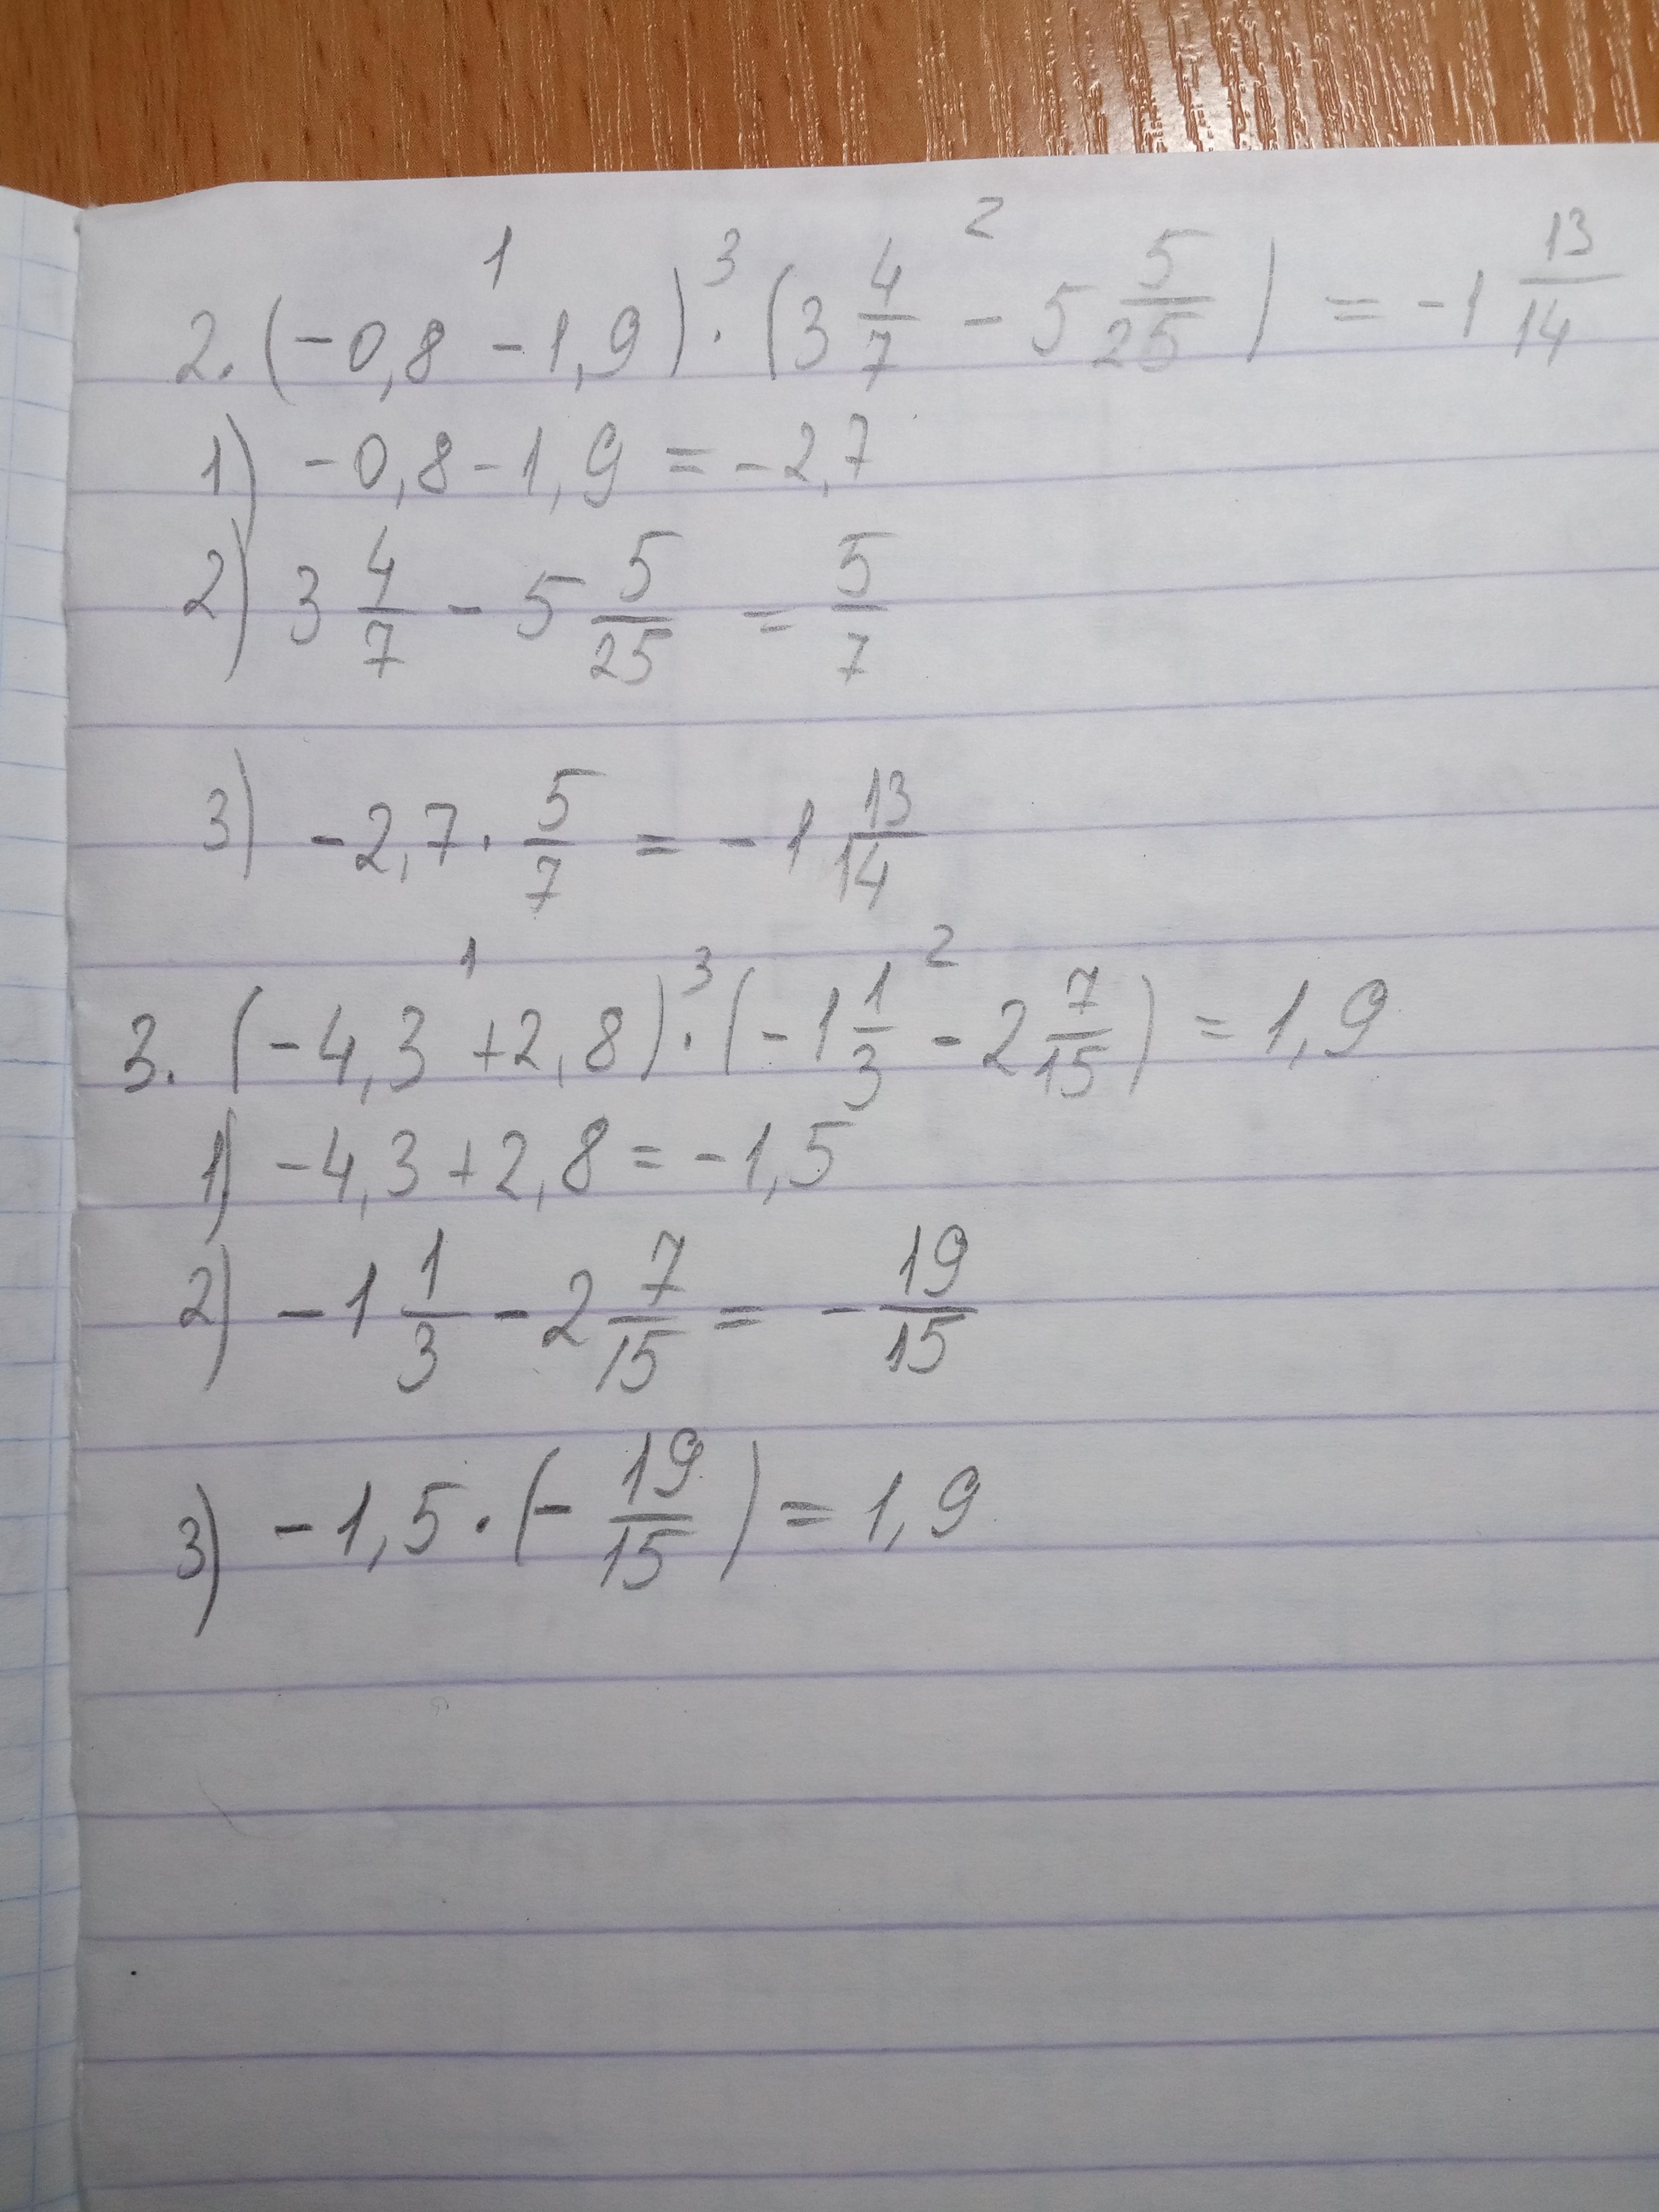 2. (-0,8 - 1,9) · (3 4/7 - 5 5/25) = -1 13/14
1) -0,8 - 1,9 = -2,7
2) 3 4/7 - 5 5/25 = 5/7
3) -2,7 · 5/7 = -1 13/14
3. (-4,3 + 2,8) · (-1 1/3 - 2 7/15) = 1,9
1) -4,3 + 2,8 = -1,5
2) -1 1/3 - 2 7/15 = - 19/15
3) -1,5 · (- 19/15) = 1,9